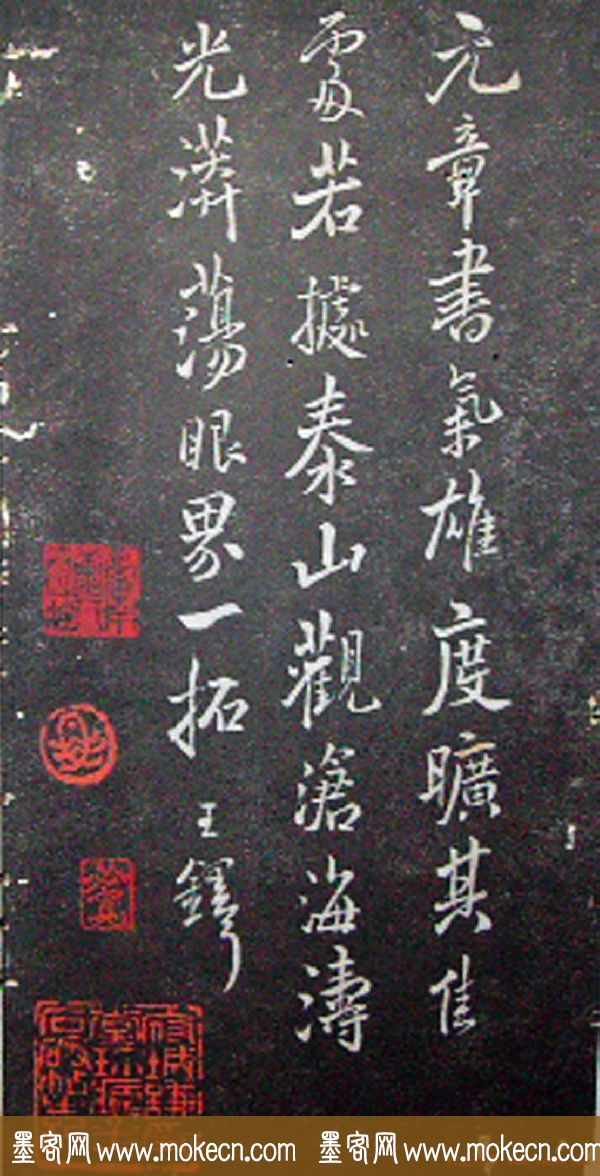 元章書氣雄度曠其佳
處若據泰山觀滄海濤
光漭蕩眼界一拓
王鐸
墨客网 www.mokecn.com 墨客网 www.mokecn.com